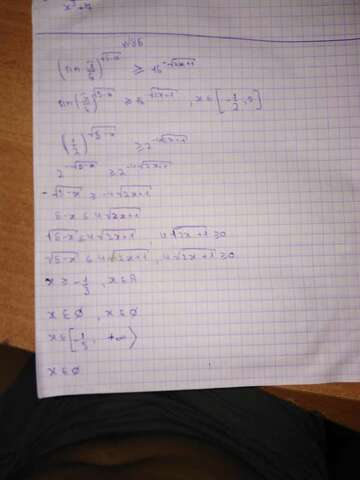 x³+7
№36
(sin π/6)^√(5-x) ≥ 16^-√(2x+1)
sin(π/6)^√(5-x) ≥ 16^-√(2x+1) , x∈[-1/2, 5]
(1/2)^√(5-x) ≥ 2^-4√(2x+1)
2^-√(5-x) ≥ 2^-4√(2x+1)
-√(5-x) ≥ -4√(2x+1)
5-x ≤ 4√(2x+1)
√(5-x) ≤ 4√(2x+1) , 4√(2x+1) ≥ 0
√(5-x) ≤ 4√(2x+1) , 4√(2x+1) ≥ 0
x ≥ -1/3 , x∈R
x∈∅ , x∈∅
x∈[-1/3, +∞)
x∈∅